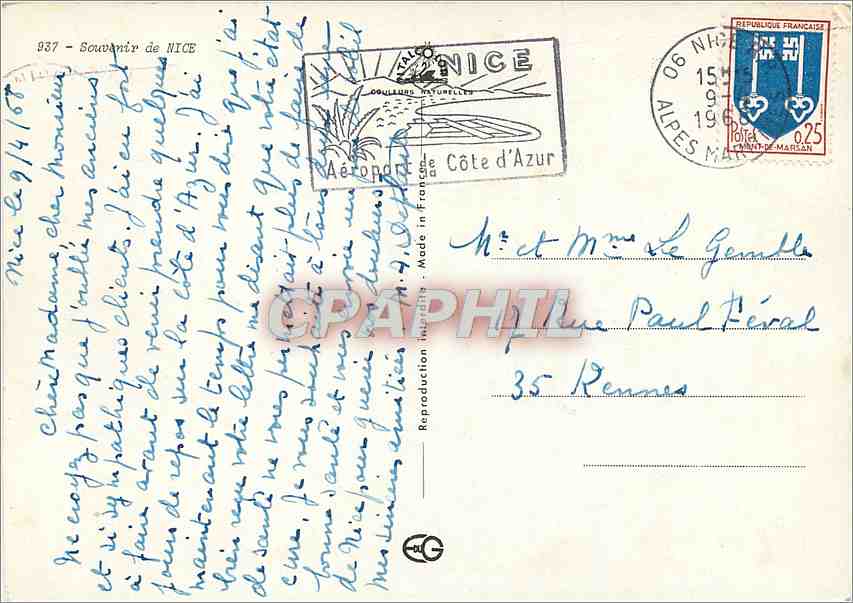 937 - Souvenir de NICE
Nice le 9/4/68
Chère Madame cher Monsieur
Ne croyez pas que j'oublie mes anciens
et si sympathiques clients. J'ai eu fort
à faire avant de venir prendre quelques
jours de repos sur la côte d'Azur. J'ai
maintenant le temps pour vous dire que j'ai
bien reçu votre lettre me disant que votre état
de santé ne vous permettait plus de faire de
cure. Je vous souhaite à tous deux une
bonne santé et vous envoie un peu de soleil
de Nice pour guérir vos douleurs
mes sincères amitiés
ITALCOLOR
COULEURS NATURELLES
NICE
Aéroport de la Côte d'Azur
06 NICE
15H15
9-
1968
ALPES MAR
REPUBLIQUE FRANÇAISE
POSTES 0,25
MONT-DE-MARSAN
Reproduction interdite - Made in France
CPAPHIL
Mr et Mme Le Gemble
17 Rue Paul Féval
35 Rennes